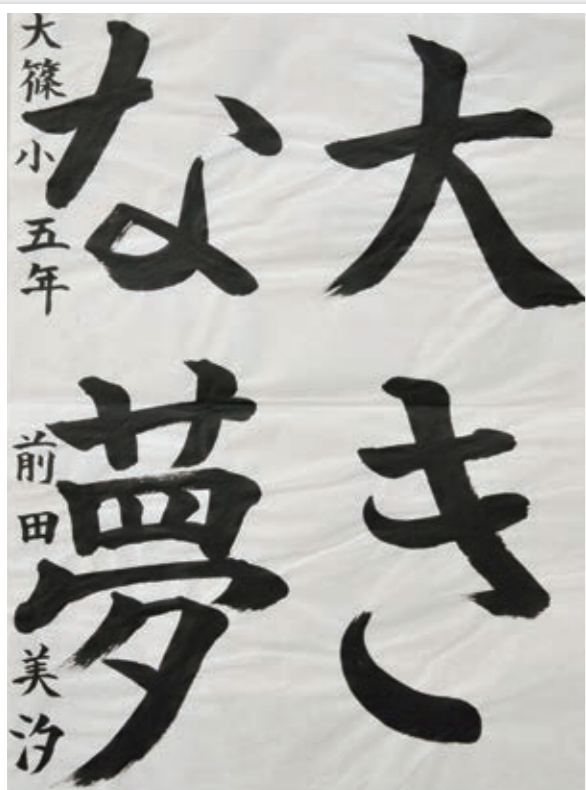 大き
な夢
大篠小 五年 前田 美汐